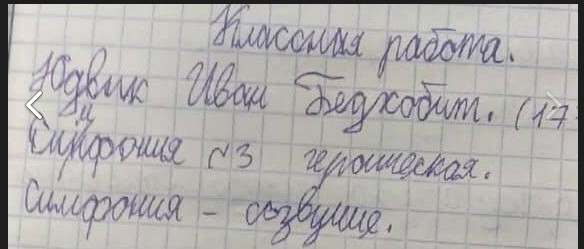 Классная работа.
Юдвик Иван Бедховит. (17
Симфония №3 героическая.
Симфония - созвучие.